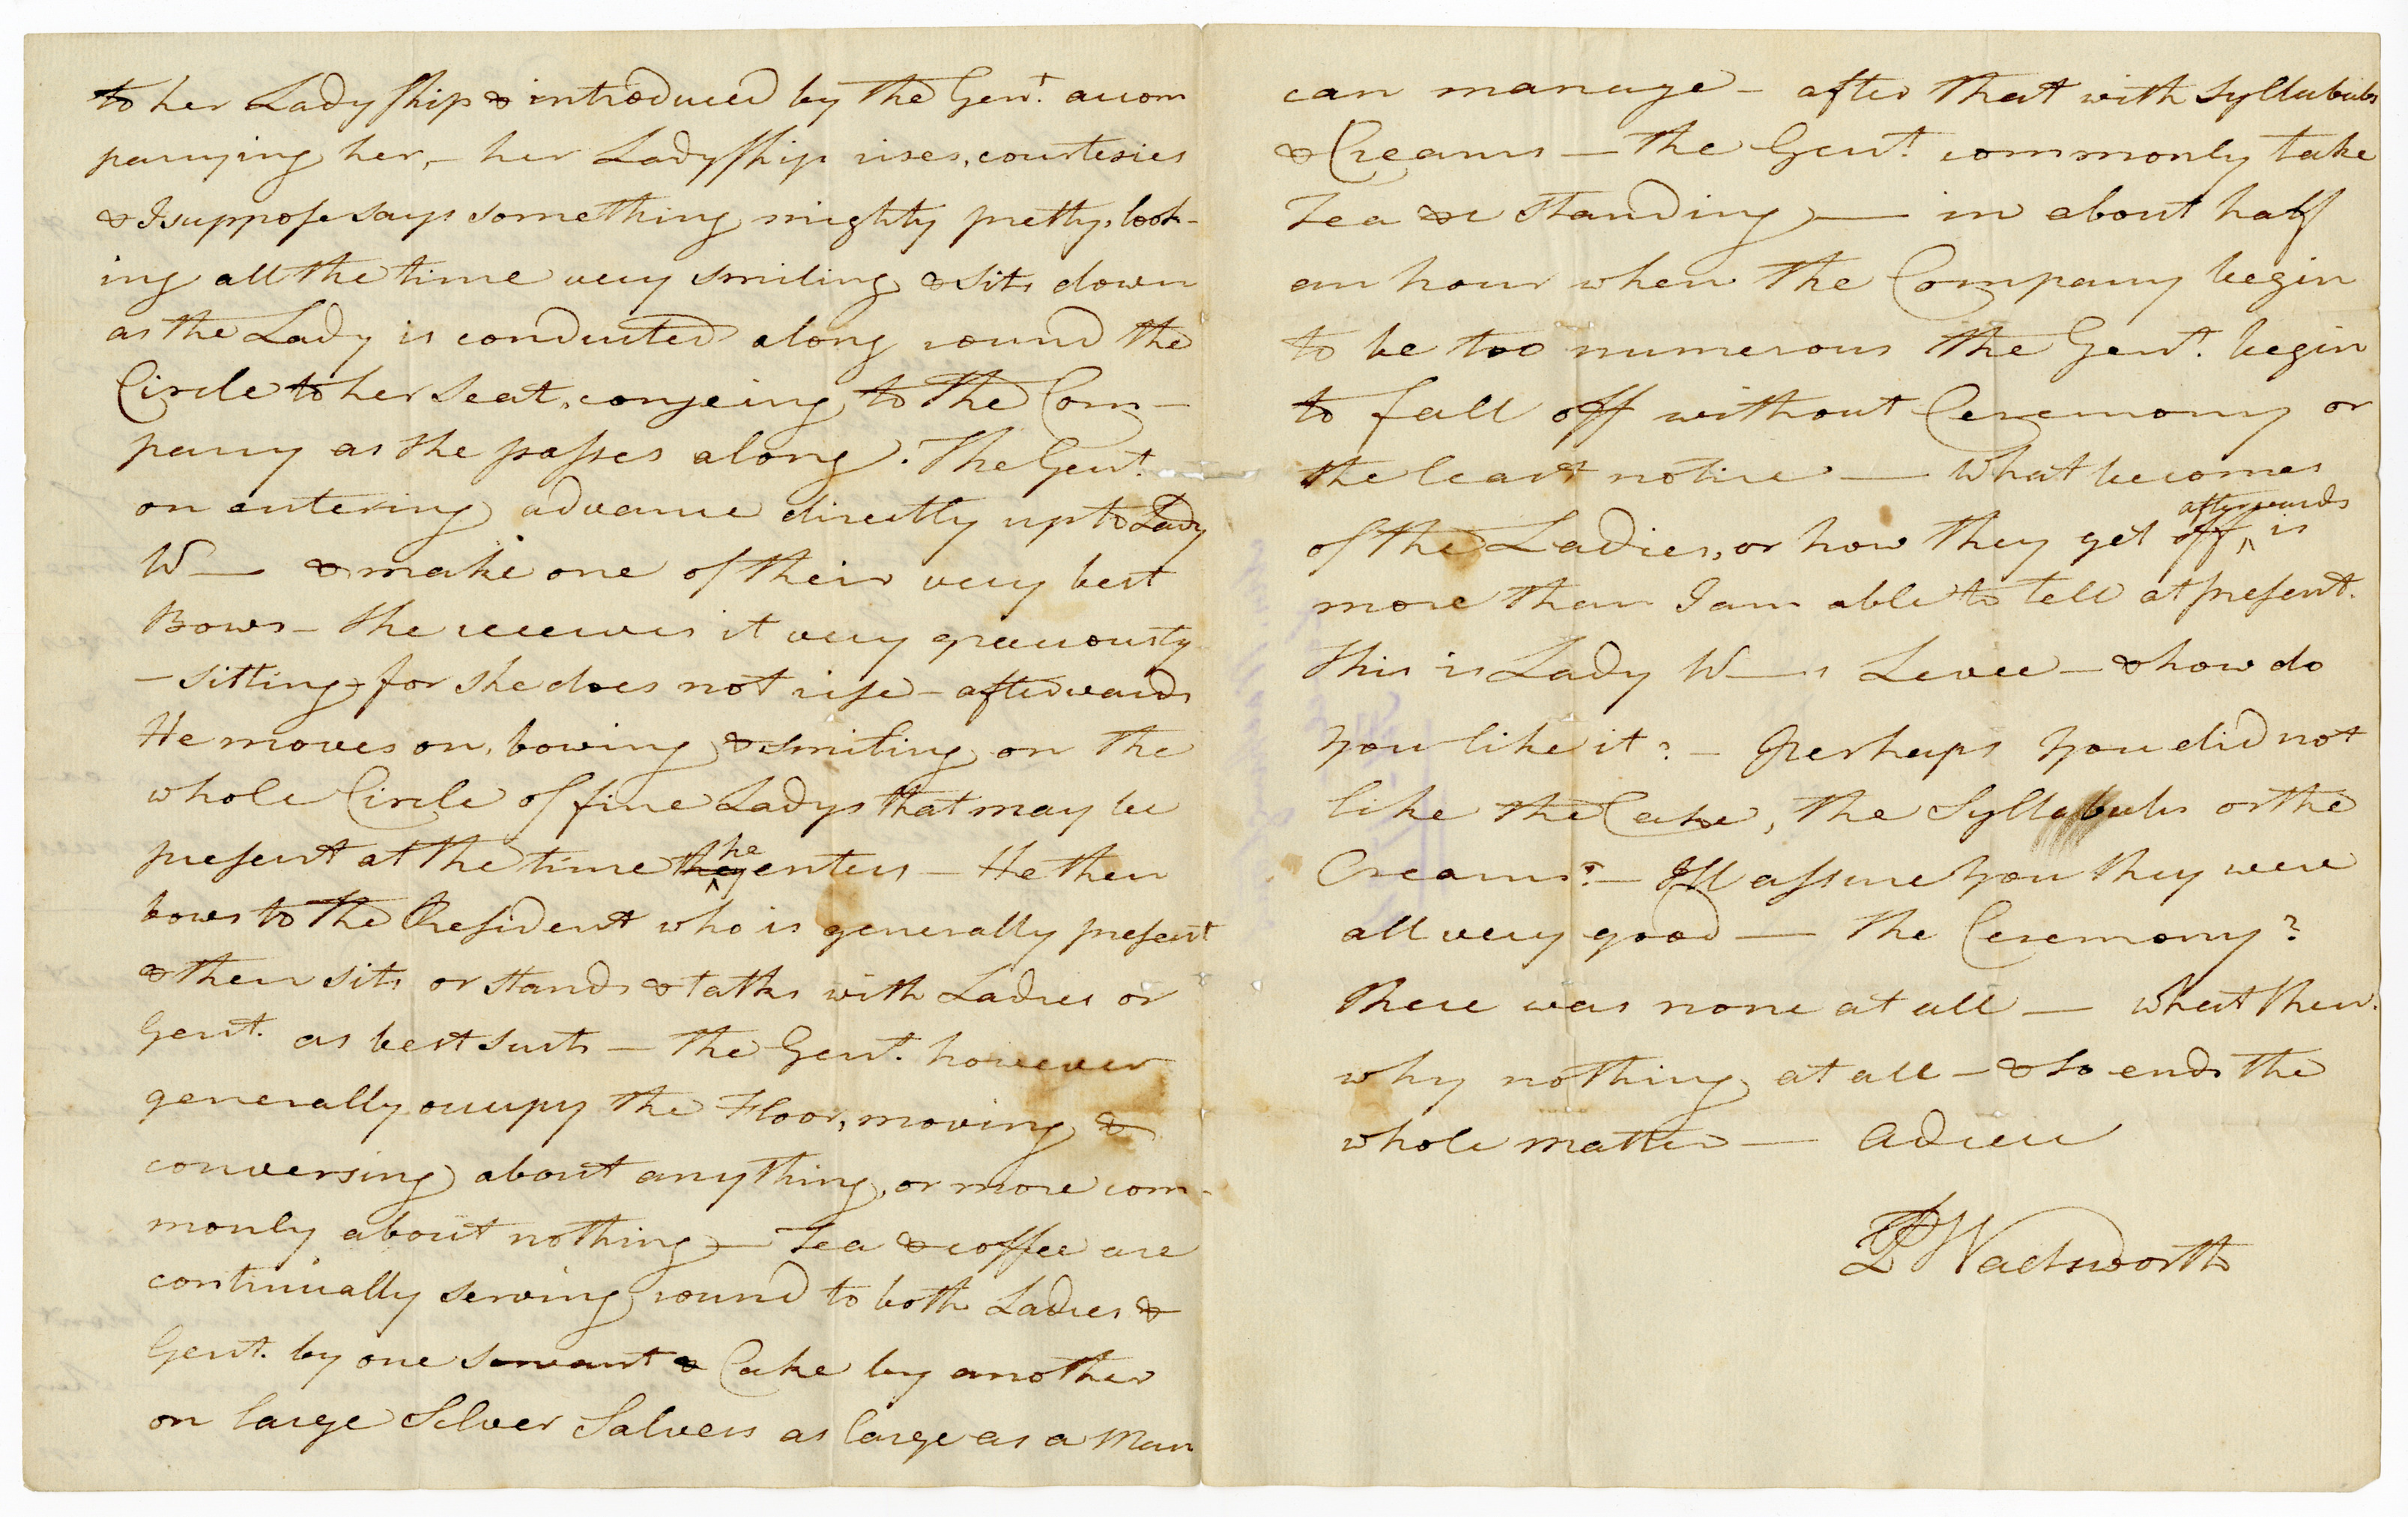 to her Ladyship & introduced by the Gent. accom
panying her, - her Ladyship rises, courtesies
& I suppose says something mighty pretty, look-
ing all the time very smiling & sits down
as the Lady is conducted along round the
Circle to her Seat, congeing to the Com-
pany as she passes along. The Gent.
on entering advance directly up to Lady
W— & make one of their very best
Bows - she receives it very graciously
- sitting - for she does not rise - afterwards
He moves on, bowing & smiling on the
whole Circle of fine Ladys that may be
present at the time they he enters - He then
bows to the President who is generally present
& then sits or stands & talks with Ladies or
Gent. as best suits - the Gent. however
generally occupy the Floor, moving &
conversing about anything, or more com-
monly about nothing - Tea & coffee are
continually serving round to both Ladies &
Gent. by one servant & Cake by another
on large Silver Salvers as large as a Man
can manage - after that with Syllabubs
& Creams - the Gent. commonly take
Tea &c standing — in about half
an hour when the Company begin
to be too numerous the Gent. begin
to fall off without Ceremony or
the least notice — What becomes
of the Ladies, or how they get off afterwards is
more than I am able to tell at present.
This is Lady W—s Levee - & how do
you like it? - Perhaps you did not
like the Cake, the Syllabubs or the
Creams? - I'll assure you they were
all very good — the Ceremony?
there was none at all — what then.
why nothing at all - & so ends the
whole matter — Adieu
P Wadsworth